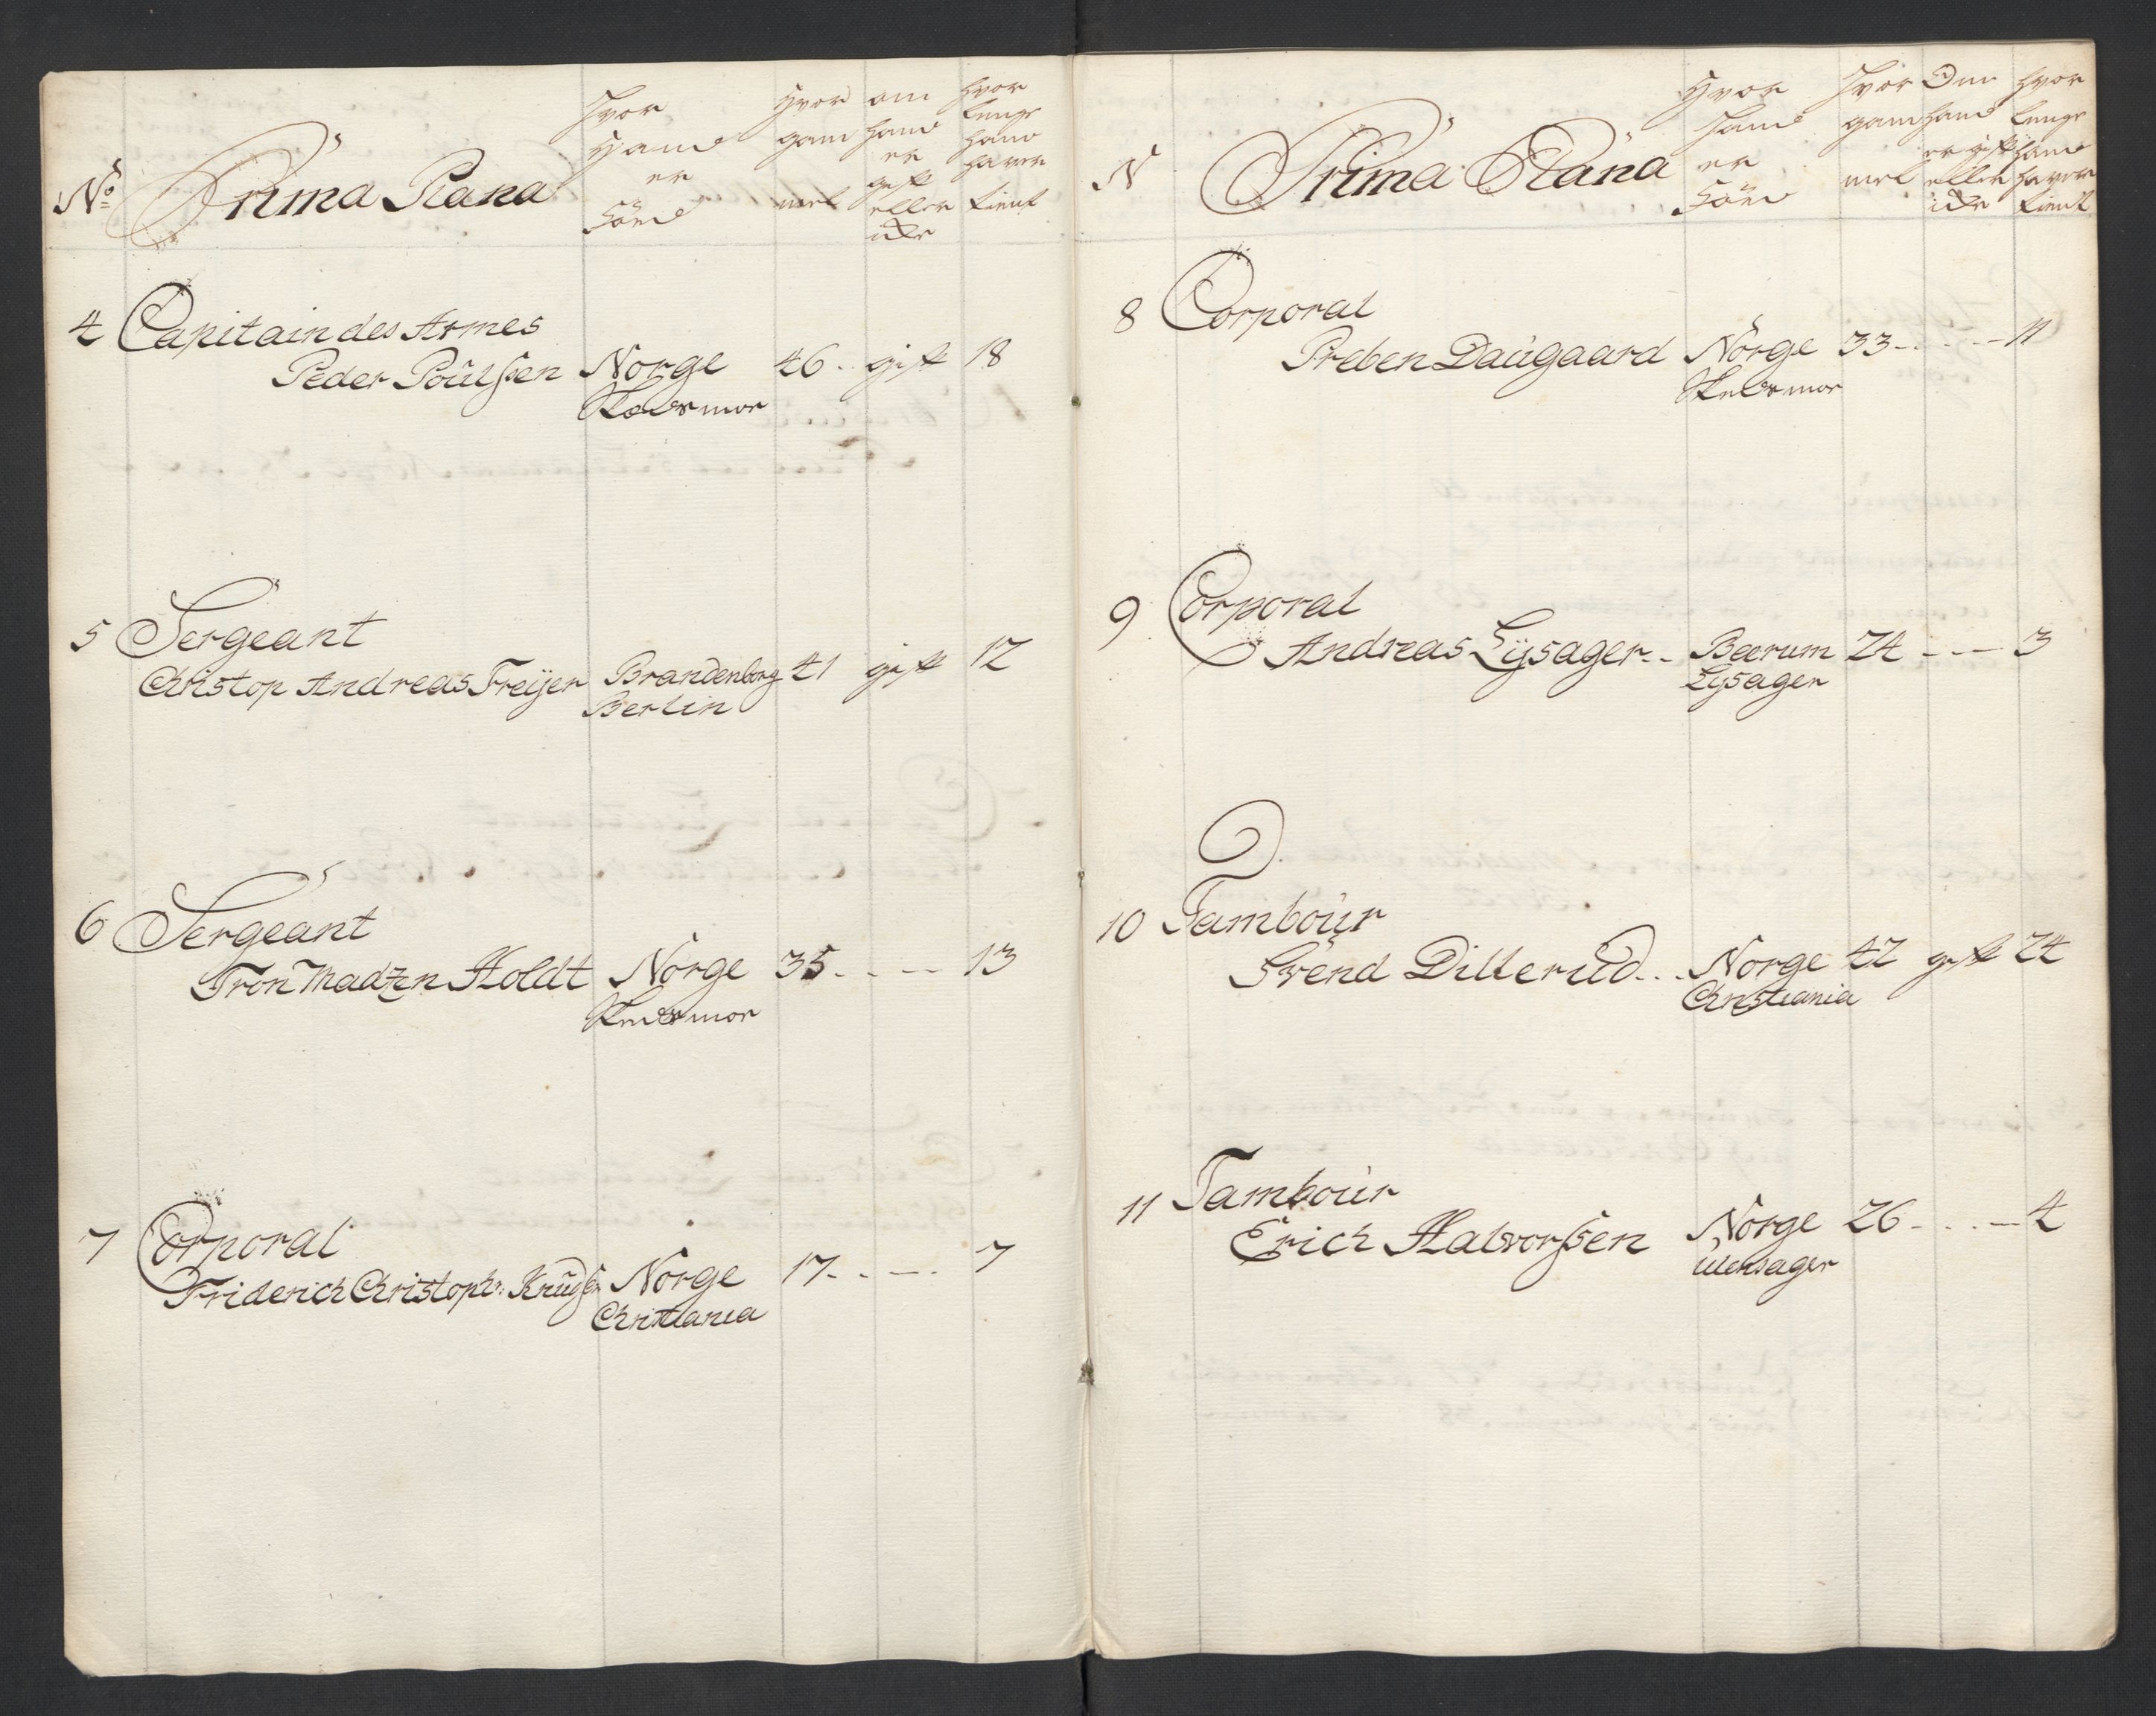 No
Prima Plana
Hvor
Hand
er
Föed
Hvor
gam
mel
om
hand
er
gift
eller
icke
hvor
lenge
hand
haver
tient
4 Capitain des Armes
Peder Poulssen Norge 46. gift 18
5 Sergeant
Christop Andreas Freyer Brandenborg 41 gift 12
Berlin
6 Sergeant
Tron Madzn Holdt Norge 35 - - - 13
7 Corporal
Friderich Christoph: Knudsn Norge 17 - - - 7
Christiania
N
Prima Plana
Hvor
Hand
er
Föed
Hvor
gam
mel
Om
hand
er gift
eller
icke
hvor
lenge
hand
haver
tient
8 Corporal
Preben Daugaard Norge 33 - - - 11
9 Corporal
Andreas Lysager - - Bærum 24 - - - 3
Lysager
10 Tambour
Svend Dillerud - - Norge 42 gift 24
Christiania
11 Tambour
Erich Halvorssen Norge 26 - - - 4
Ullensager